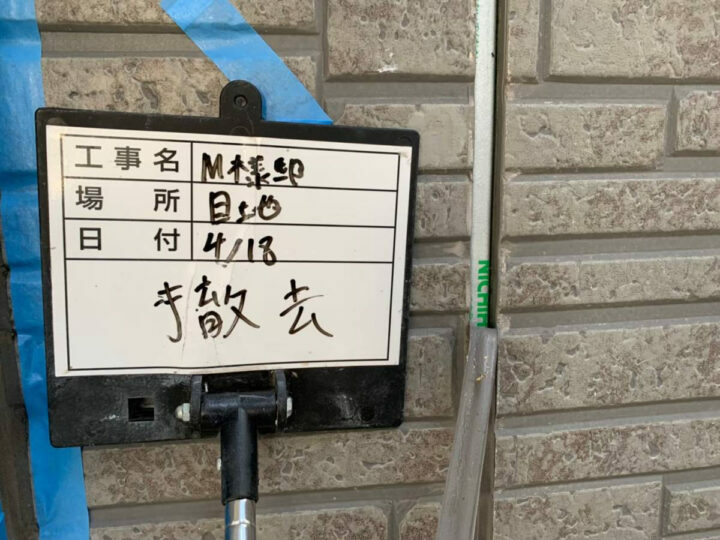 工事名 M様邸
場所 目地
日付 4/18
撤去
NICHIH